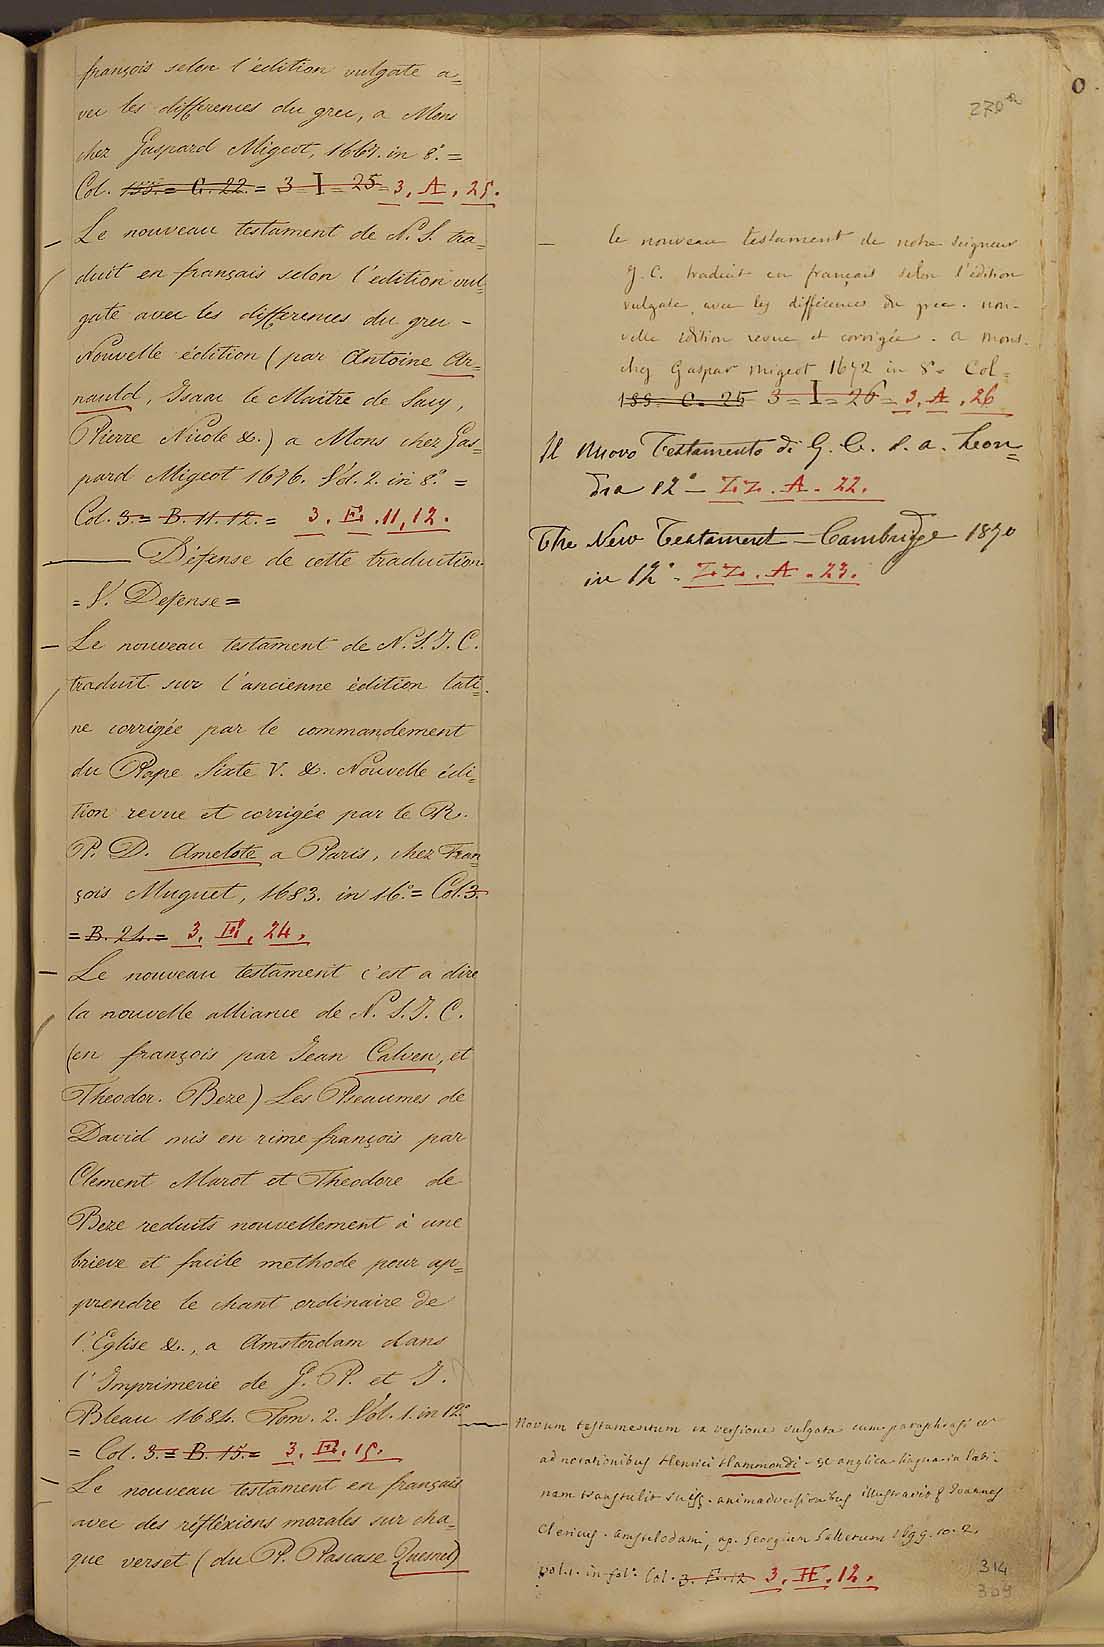 françois selon l'édition vulgate a=
vec les differences du grec, a Mons
chez Gaspard Migeot, 1667. in 8.° =
Col. 155. = C. 22. = 3 = I = 25 = 3. A. 25.
Le nouveau testament de N. S. tra=
duit en français selon l'edition vul=
gate avec les differences du grec -
Nouvelle édition (par Antoine Ar=
nauld, Isaac le Maitre de Sacy,
Pierre Nicole &.) a Mons chez Gas=
pard Migeot 1676. Vol. 2. in 8.° =
Col. 3. = B. 11. 12. = 3. 11, 12.
Défense de cette traduction
= V. Defense =
Le nouveau testament de N. S. J. C.
traduit sur l'ancienne édition lati=
ne corrigée par le commandement
du Pape Sixte V. &. Nouvelle édi=
tion revue et corrigée par le R.
P. D. Amelote a Paris, chez Fran
çois Muguet, 1683. in 16.° = Col. 3.
= B. 24. = 3. 24.
Le nouveau testament c'est a dire
la nouvelle alliance de N. S. J. C.
(en françois par Jean Calven, et
Theodor. Beze) Les Pseaumes de
David mis en rime françois par
Clement Marot et Theodore de
Beze reduits nouvellement à une
brieve et facile methode pour ap=
prendre le chant ordinaire de
l'Eglise &., a Amsterdam dans
l'Imprimerie de G. P. et J.
Bleau 1684. Tom. 2. Vol. 1. in 12.°
= Col. 3. = B. 15. = 3. 15.
Le nouveau testament en français
avec des réflexions morales sur cha=
que verset (du P. Pascase Quesnel)
270
le nouveau testament de notre seigneur
J. C. traduit en français selon l'édition
vulgate avec les differences du grec. nou-
velle édition revue et corrigée. a mons.
chez Gaspar migeot 1672 in 8.° Col =
155. C. 25 3 = I = 26 = 3. A. 26
Il Nuovo Testamento di G. C. s. a. Lon=
dra 12° - ZZ. A. 22.
The New Testament - Cambridge 1870
in 12° - ZZ. A. 23.
Novum testamentum ex versione vulgata cum paraphrasi et
adnotationibus Henrici Hammondi. ex anglica lingua in lati-
nam transtulit suisq. animadversionibus illustravit Joannes
Clericus. amstelodami, ap. Georgium Gallet
vol. 1. in fol.° Col. 3. E. 12 3. 12.
314
309